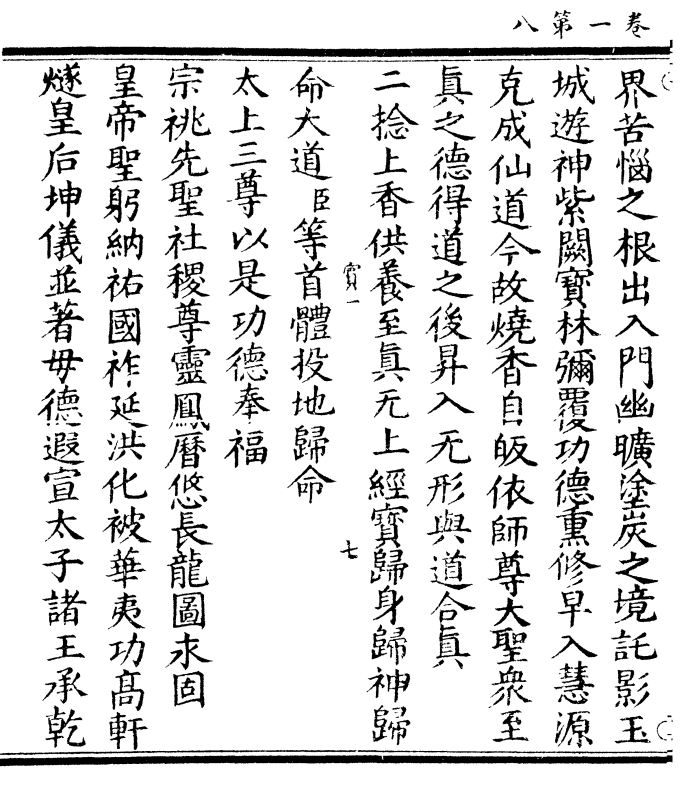 卷一第八
界苦惱之根出入門幽曠塗炭之境託影玉
城遊神紫闕寶林彌覆功德熏修早入慧源
克成仙道今故燒香自皈依師尊大聖衆至
眞之德得道之後昇入无形與道合眞
二捻上香供養至眞无上經寶歸身歸神歸
寳一
七
命大道臣等首體投地歸命
太上三尊以是功德奉福
宗祧先聖社稷尊靈鳳曆悠長龍圖永固
皇帝聖躬納祐國祚延洪化被華夷功髙軒
燧皇后坤儀並著母德遐宣太子諸王承乾